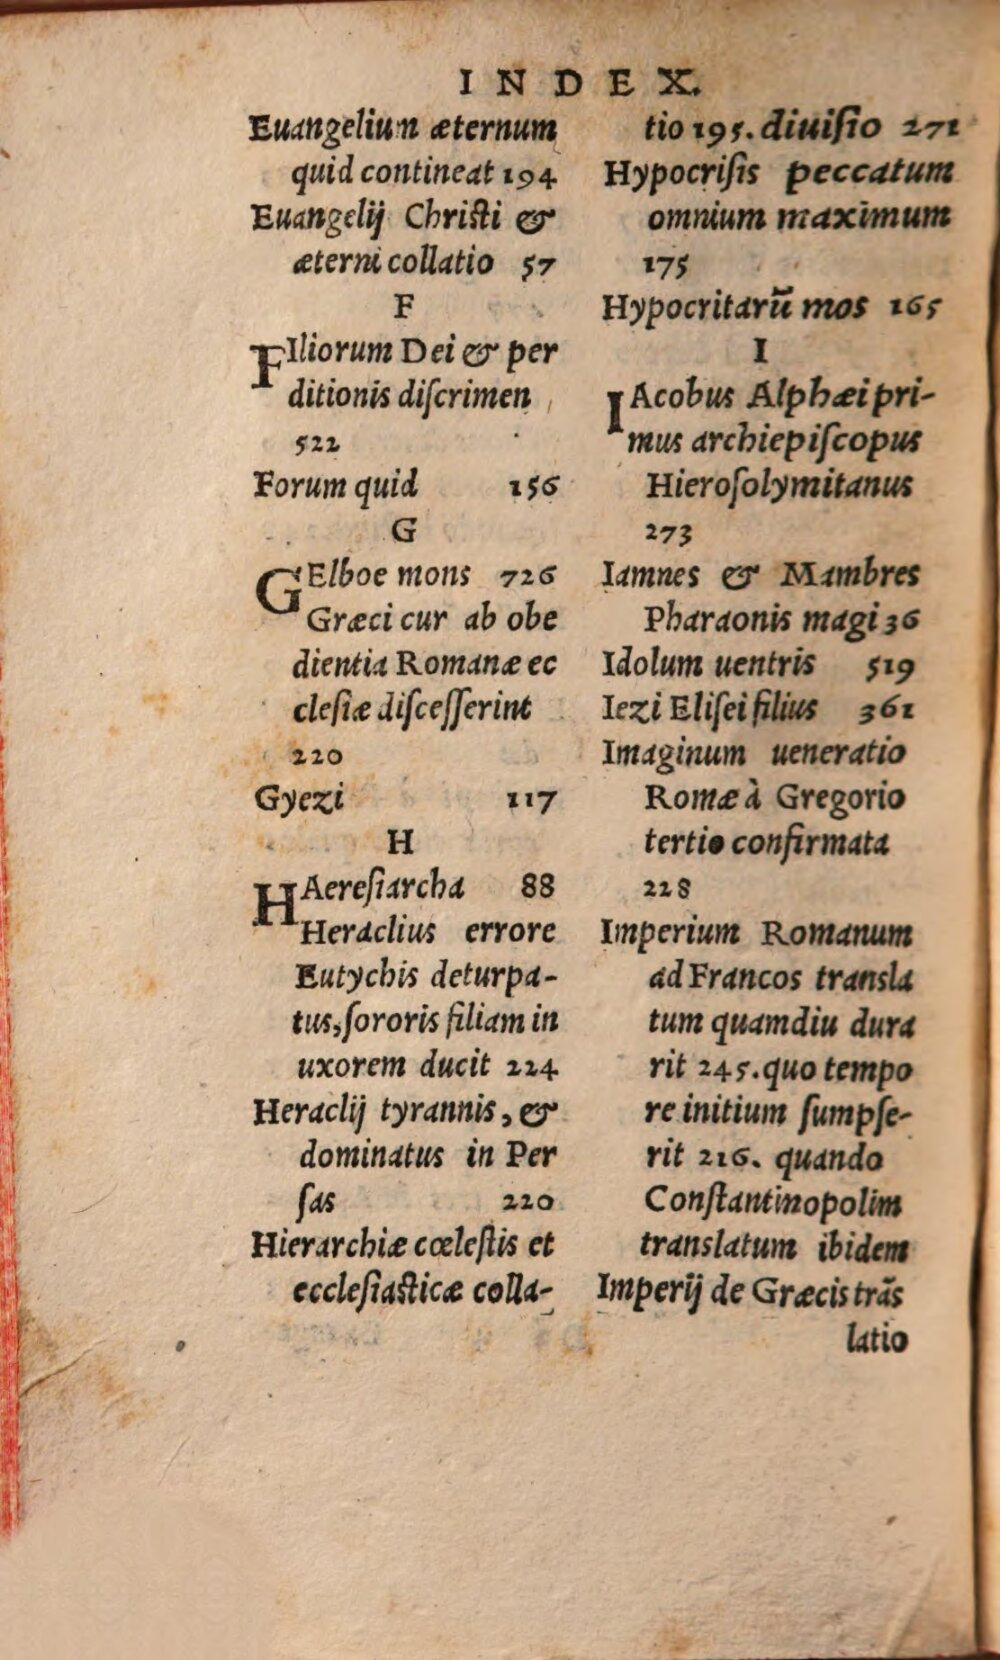 INDEX.
Euangelium æternum
quid contineat 194
Euangelij Christi &
æterni collatio 57
F
FIliorum Dei & per
ditionis diſcrimen
522
Forum quid 156
G
GElboe mons 726
Græci cur ab obe
dientia Romanæ ec
cleſiæ diſceſſerint
220
Gyezi 117
H
HAereſiarcha 88
Heraclius errore
Eutychis deturpa-
tus, ſororis filiam in
uxorem ducit 224
Heraclij tyrannis, &
dominatus in Per
ſas 220
Hierarchiæ cœleſtis et
eccleſiaſticæ colla-
tio 195. diuiſio 271
Hypocriſis peccatum
omnium maximum
175
Hypocritarū mos 165
I
IAcobus Alphæi pri-
mus archiepiſcopus
Hieroſolymitanus
273
Iamnes & Mambres
Pharaonis magi 36
Idolum uentris 519
Iezi Eliſei filius 361
Imaginum ueneratio
Romæ à Gregorio
tertio confirmata
228
Imperium Romanum
ad Francos transla
tum quamdiu dura
rit 245. quo tempo
re initium ſumpſe-
rit 216. quando
Conſtantinopolim
translatum ibidem
Imperij de Græcis trãs
latio